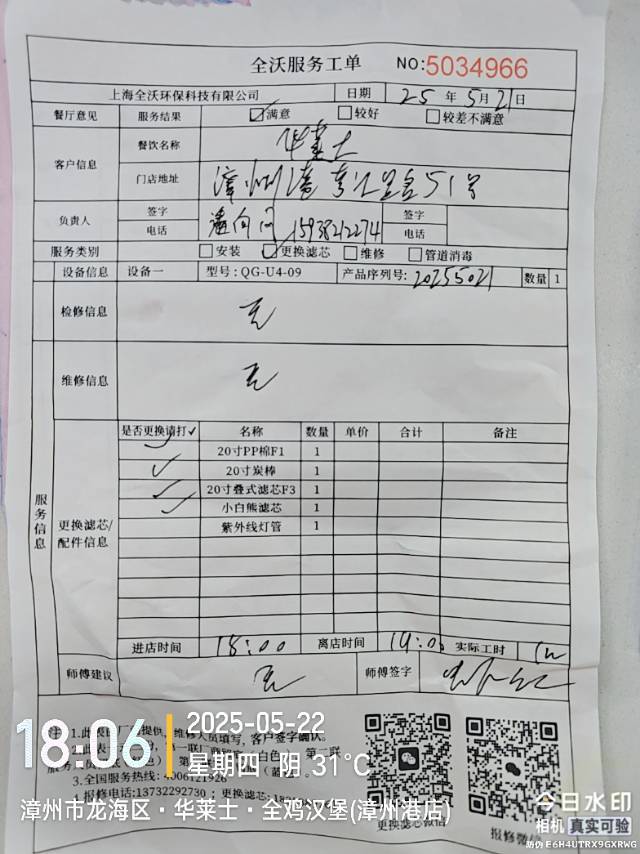 全沃服务工单 NO:5034966
上海全沃环保科技有限公司 日期 25年5月21日
餐厅意见 服务结果 ☑满意 □较好 □较差不满意
客户信息 餐饮名称 华莱士
门店地址 51号
负责人 签字 签字
电话 电话
服务类别 □安装 ☑更换滤芯 □维修 □管道消毒
设备信息 设备一 型号:QG-U4-09 产品序列号: 20255021 数量 1
服务信息
检修信息 无
维修信息 无
更换滤芯/配件信息
是否更换请打✓ 名称 数量 单价 合计 备注
✓ 20寸PP棉F1 1
✓ 20寸炭棒 1
✓ 20寸叠式滤芯F3 1
✓ 小白熊滤芯 1
紫外线灯管 1
进店时间 18:00 离店时间 19:00 实际工时
师傅建议 无 师傅签字
3.全国服务热线:
4.报修电话:13732292730;更换滤芯:
更换滤芯微信
报修微信
18:06
2025-05-22
星期四·阴 31℃
漳州市龙海区·华莱士·全鸡汉堡(漳州港店)
今日水印
相机 真实可验
防伪 E6H4UTRX9GXRWG